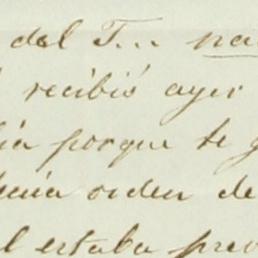 del T... na
recibió ayer
porque te
orden de
l estaba prev